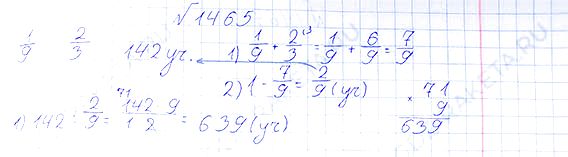 √1465
1/9 2/3 142 уч. 1) 1/9 + 2/3 ⁽³ = 1/9 + 6/9 = 7/9
2) 1 - 7/9 = 2/9 (уч)
1) 142 : 2/9 = 71 142·9/1 2 = 639 (уч)
× 71
9
639